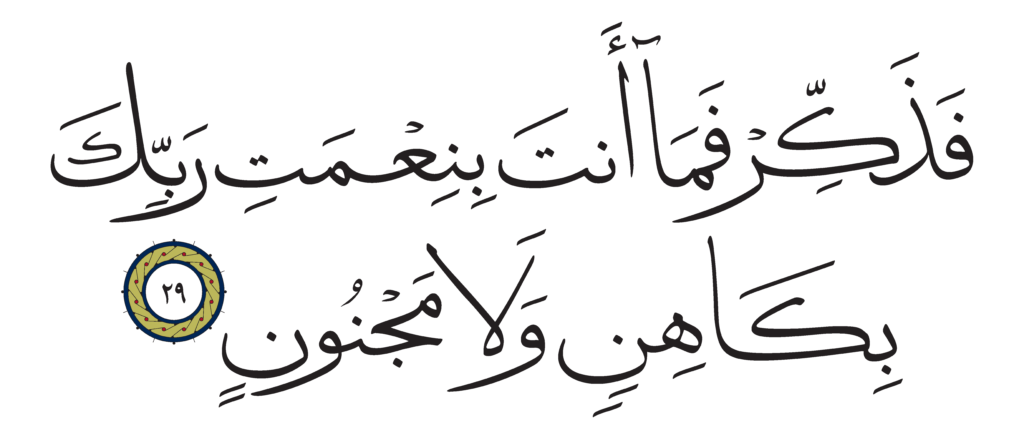 فَذَكِّرۡ فَمَآ أَنتَ بِنِعۡمَتِ رَبِّكَ
بِكَاهِنٖ وَلَا مَجۡنُونٍ ٢٩